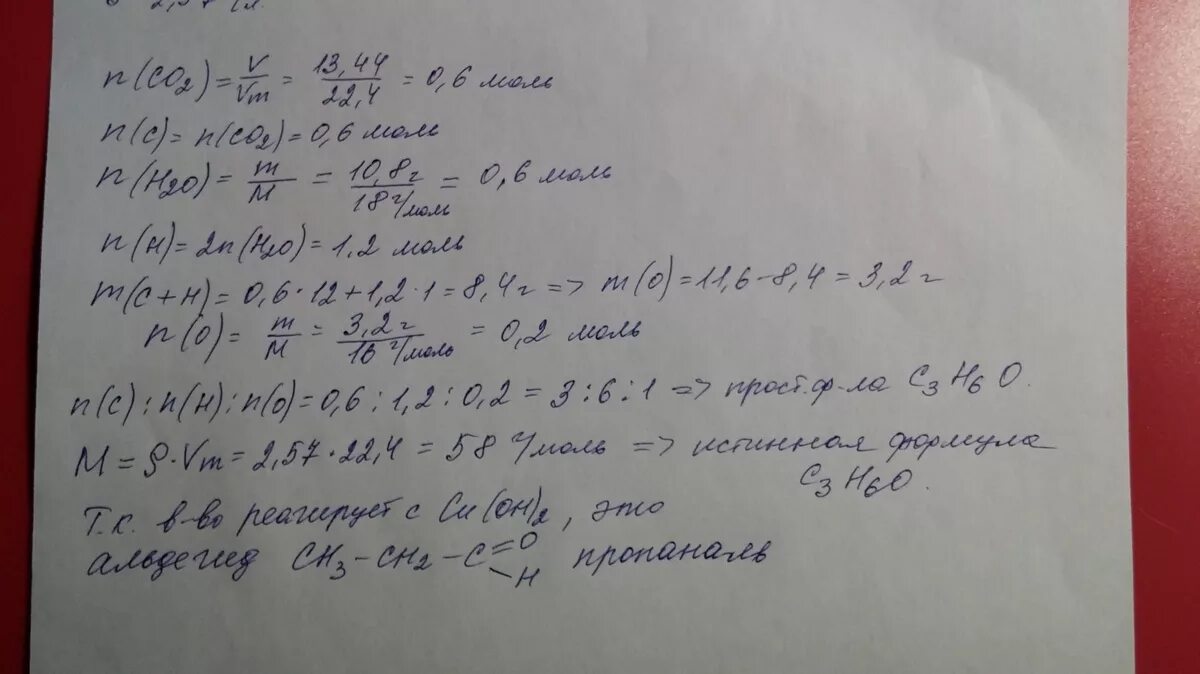 n(CO2) = V/Vm = 13,44/22,4 = 0,6 моль
n(C) = n(CO2) = 0,6 моль
n(H2O) = m/M = 10,8 г/18 г/моль = 0,6 моль
n(H) = 2n(H2O) = 1,2 моль
m(C+H) = 0,6·12+1,2·1 = 8,4 г => m(O) = 11,6-8,4 = 3,2 г
n(O) = m/M = 3,2 г/16 г/моль = 0,2 моль
n(C):n(H):n(O) = 0,6:1,2:0,2 = 3:6:1 => прост. ф-ла C3H6O.
M = ρ·Vm = 2,57·22,4 = 58 г/моль => истинная формула
C3H6O.
Т.к. в-во реагирует с Cu(OH)2, это
альдегид CH3-CH2-C=O -H пропаналь